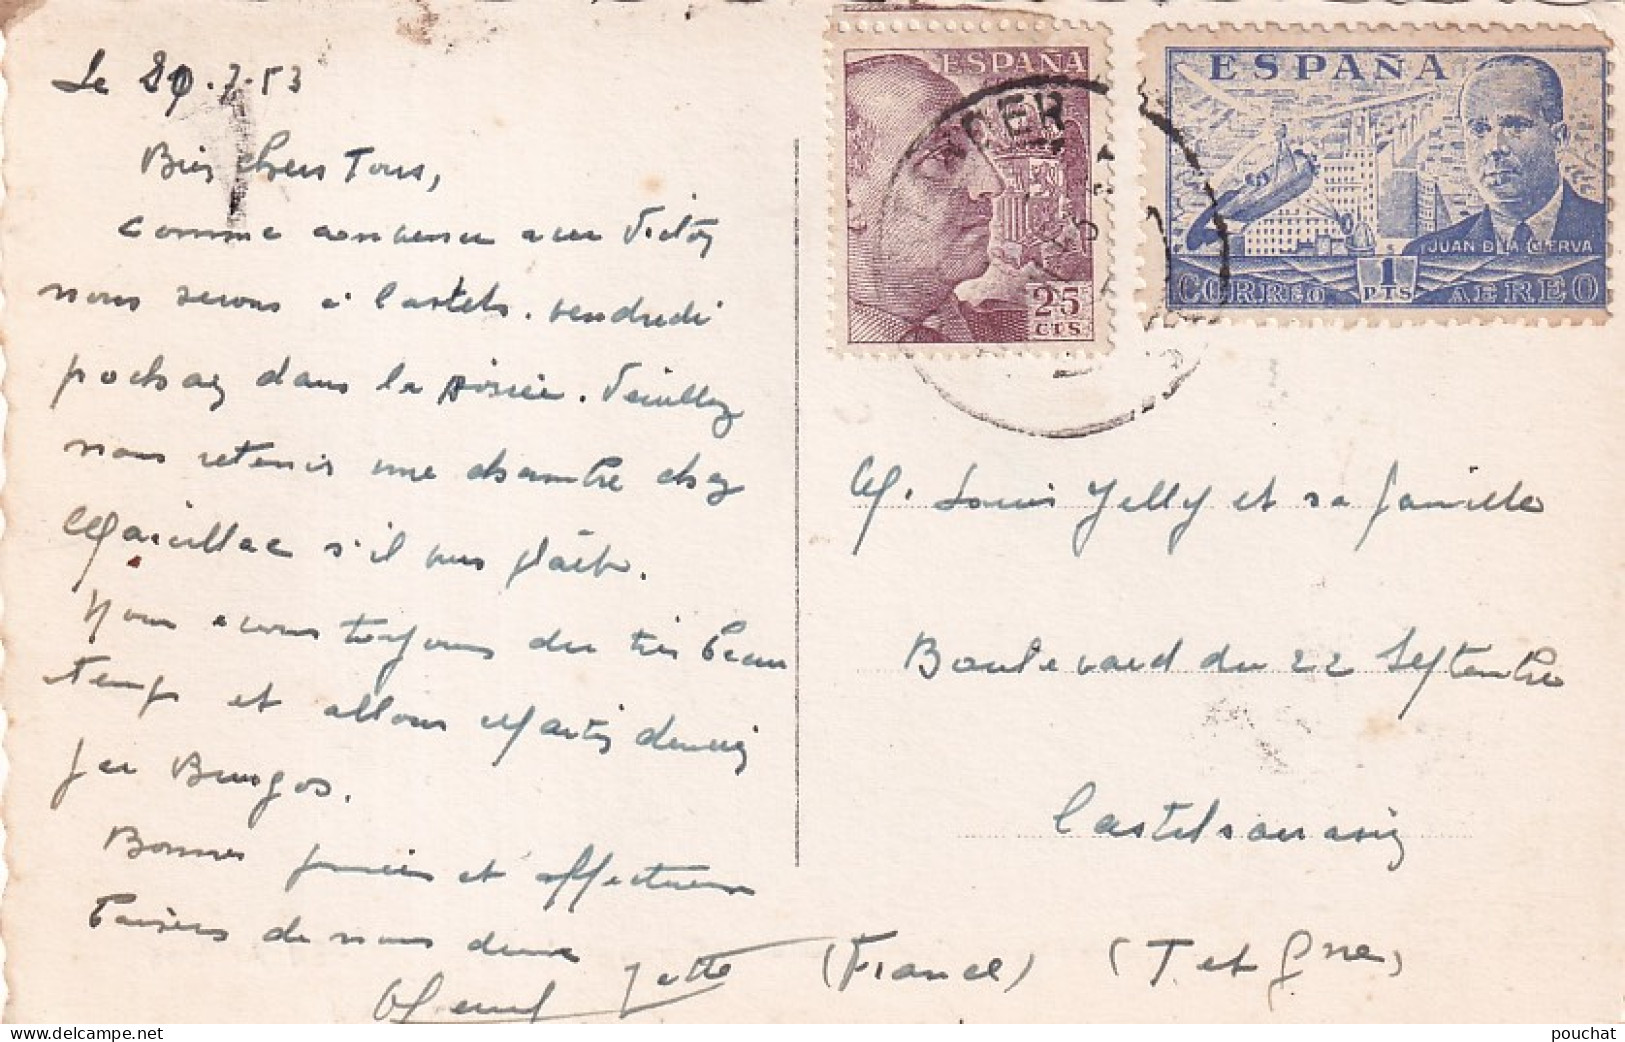 Le 20.7.53
Bien chers Tous,
comme convenu avec Victor
nous serons à Castels. vendredi
prochain dans la soirée. Veuillez
nous retenir une chambre chez
Marcillac s'il vous plaît.
Nous avons toujours du très beau
temps et allons
par Burgos.
Bonnes pensées et affectueux
baisers de nous deux
Yette
ESPAÑA
25
CTS
ANDER
ESPAÑA
JUAN DE LA CIERVA
1
PTS
CORREO AEREO
M. Louis Jelly et sa famille
Boulevard du 22 Septembre
Castelsarrasin
(France) (T et Gne)
pouchat